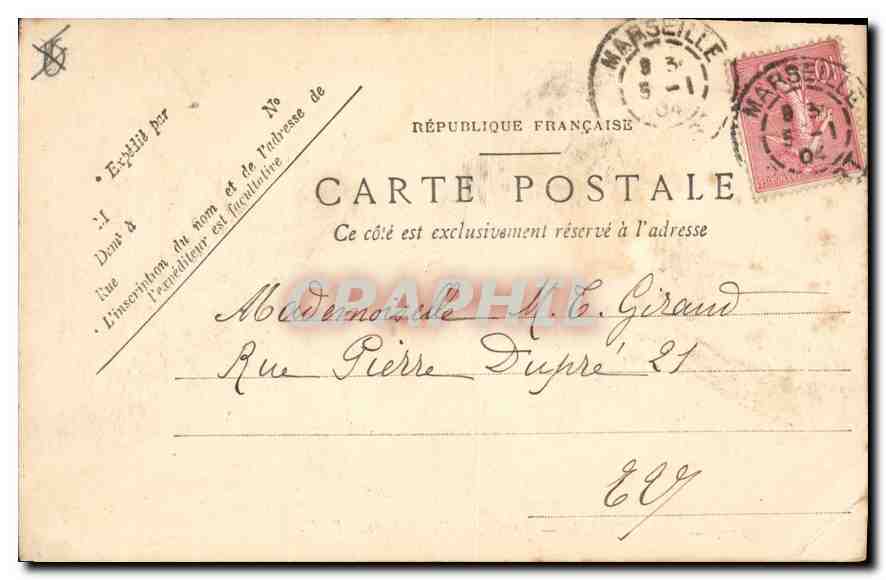 RÉPUBLIQUE FRANÇAISE
CARTE POSTALE
Ce côté est exclusivement réservé à l'adresse
• Expédié par
No
M
Demt à
Rue
• L'inscription du nom et de l'adresse de
l'expéditeur est facultative
MARSEILLE
8 3
5 -1
04
MARSEILLE
8 3
5 -1
04
10
CPAPHIL
Mademoiselle M. T. Giraud
Rue Pierre Dupré 21
EV